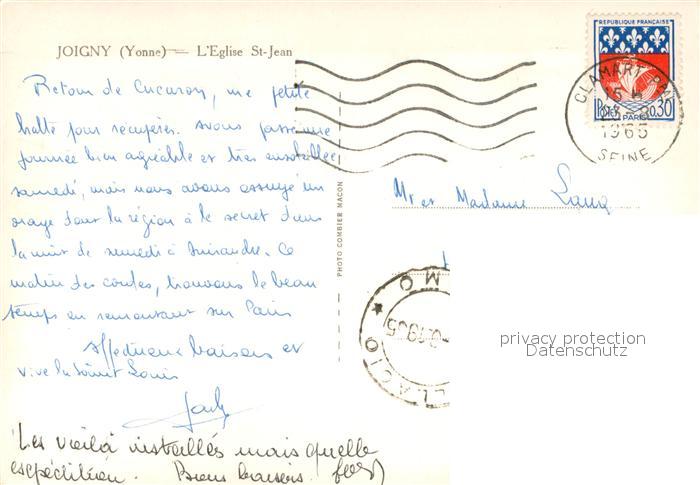 JOIGNY (Yonne) — L'Eglise St-Jean
Retour de Cucuron, une petite
halte pour récupérer. Avons passé une
journée bien agréable et très ensoleillée
samedi, mais nous avons essuyé un
orage dans la région à le secret dans
la nuit de samedi à dimanche. Ce
matin des trouvons le beau
temps en remontant sur Paris
Affectueux baisers et
vive la Saint Louis
Les voilà installés mais quelle
expédition. Bons baisers.
PHOTO COMBIER MACON
REPUBLIQUE FRANÇAISE
POSTES PARIS 0.30
CLAMART
15 H
1965
SEINE
Mr et Madame
privacy protection
Datenschutz